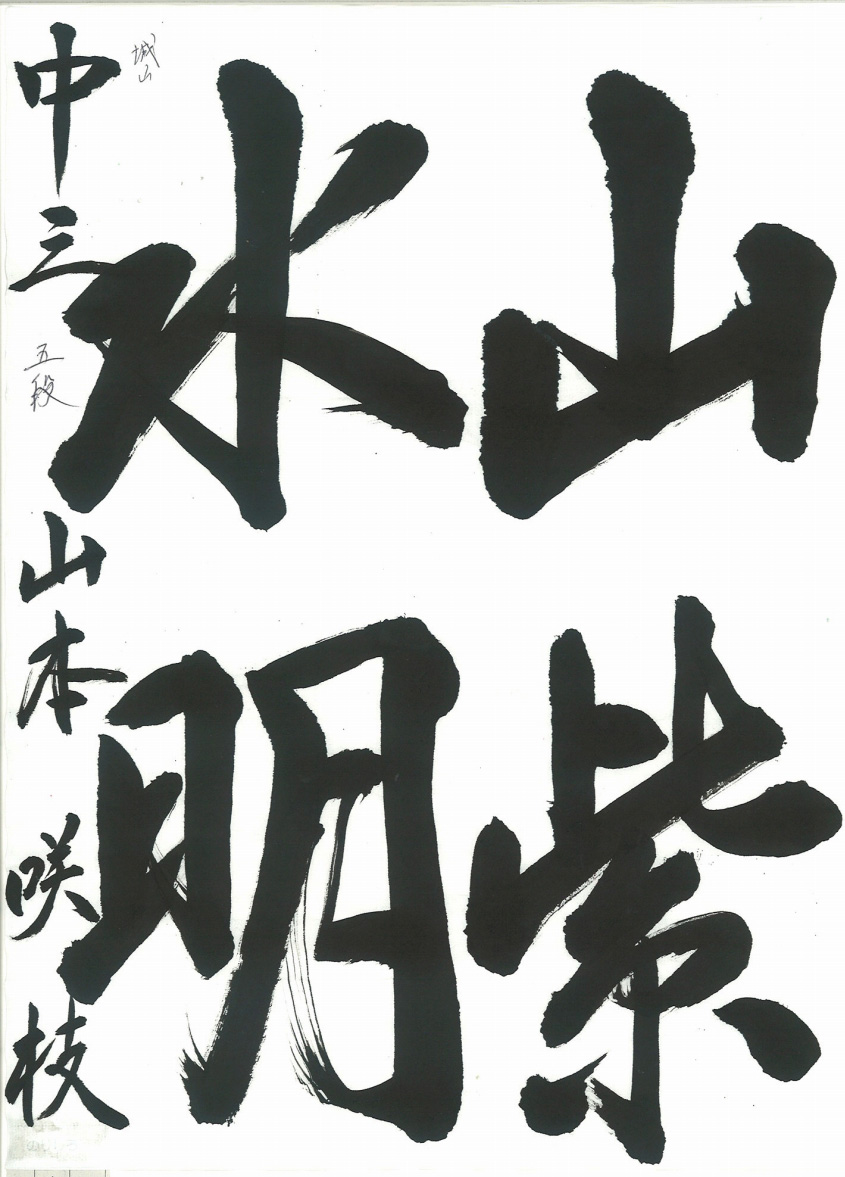 山紫
水明
城山
中三 五段 山本 咲枝